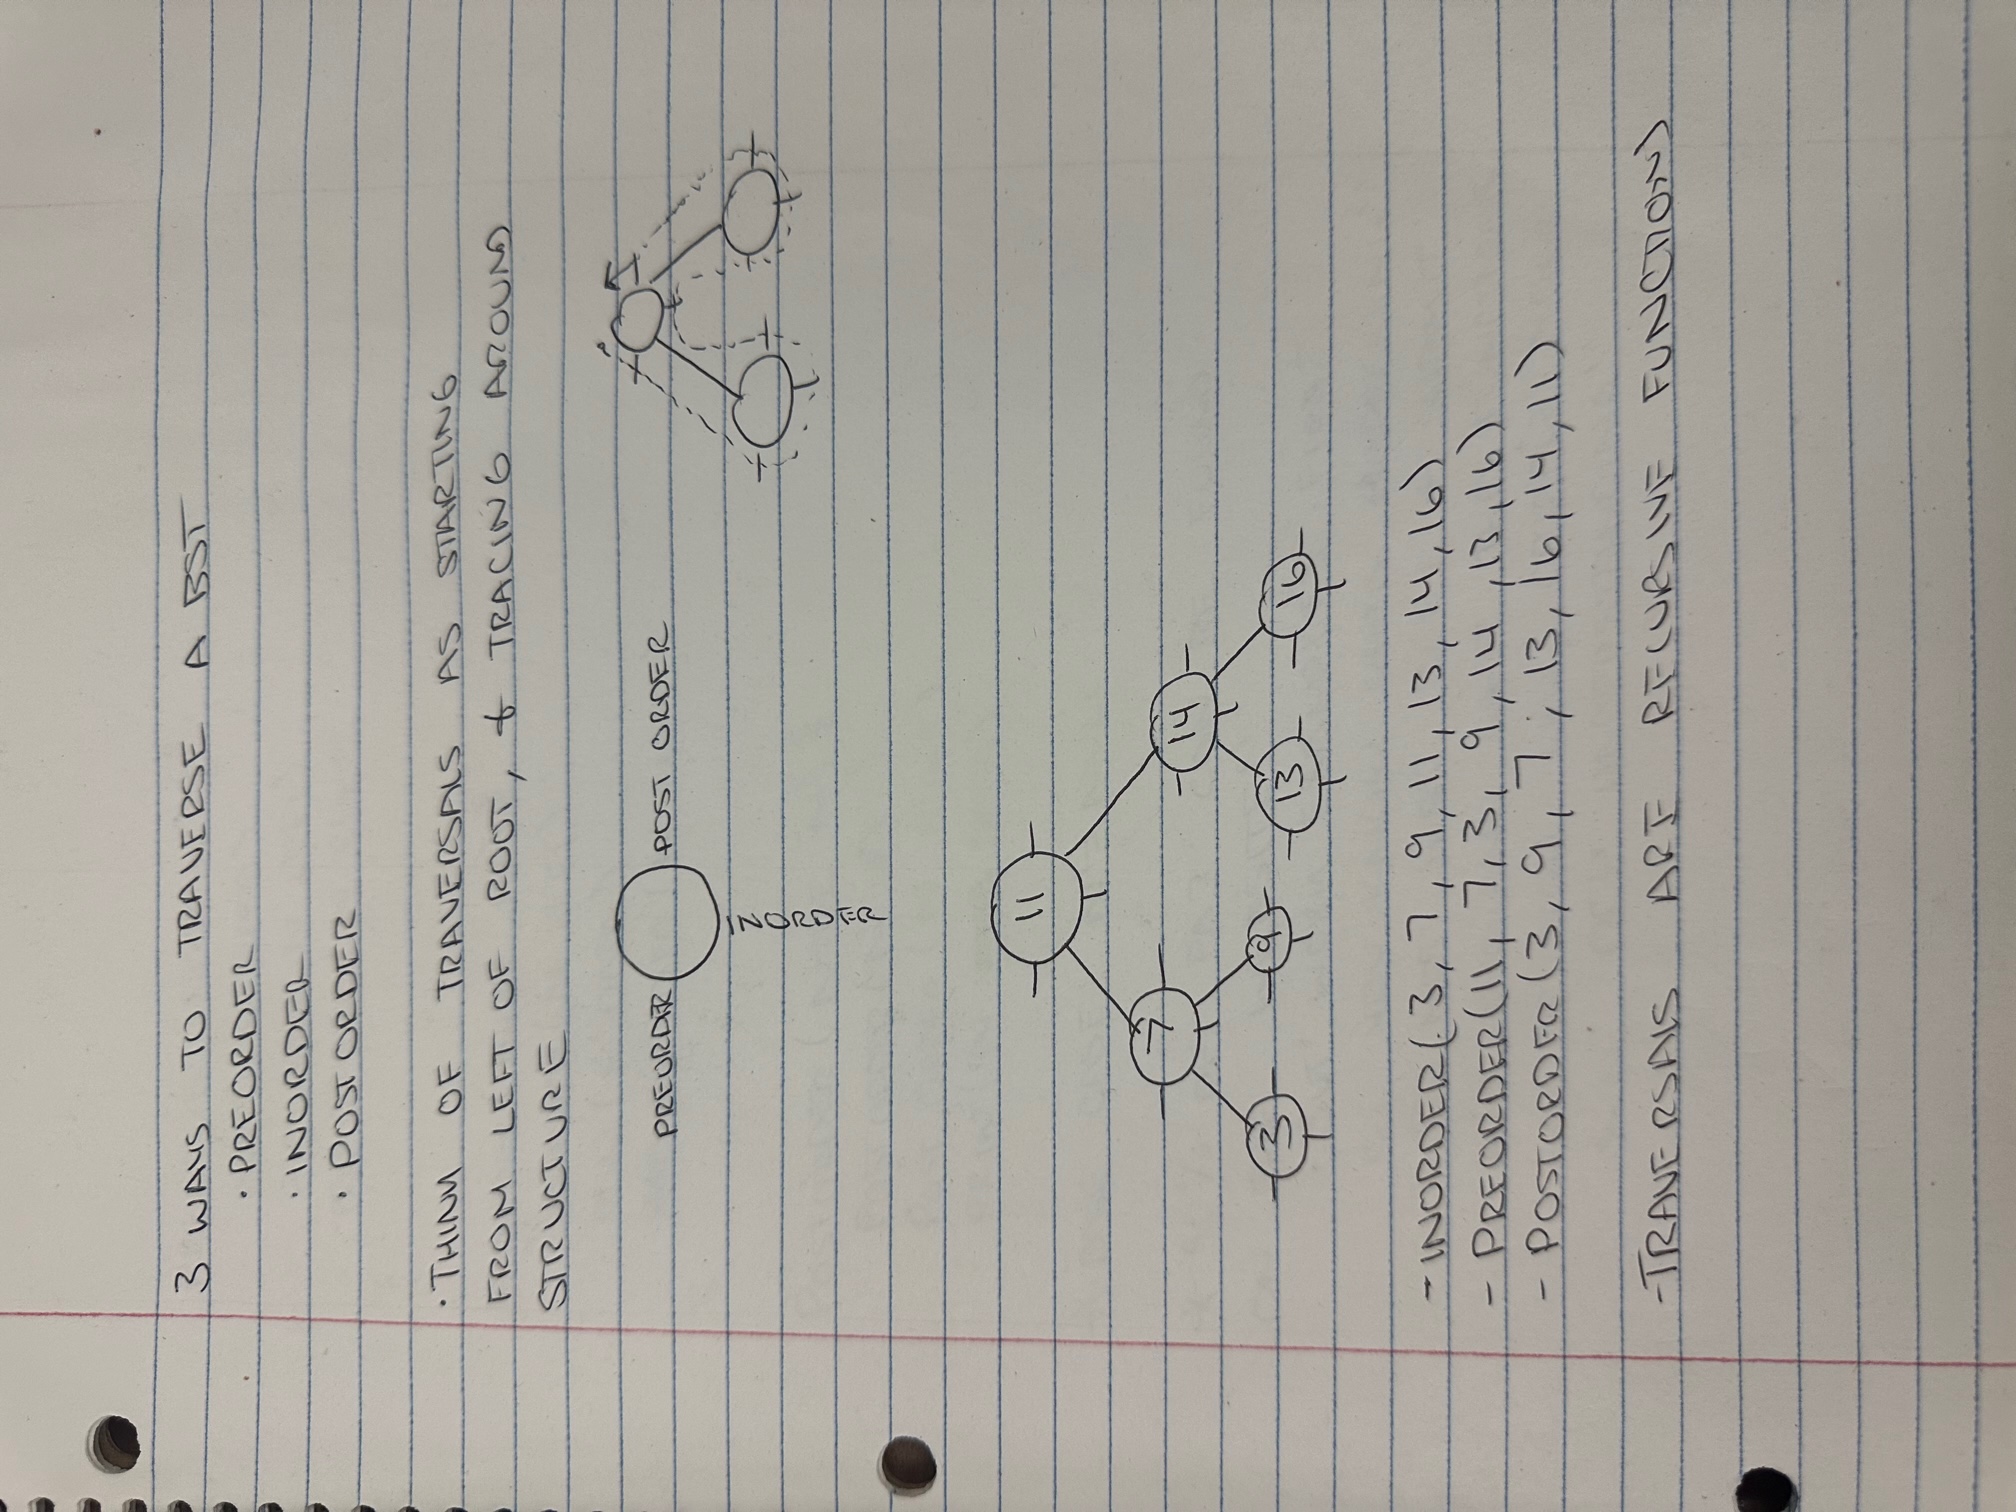 3 WAYS TO TRAVERSE A BST
· PREORDER
· INORDER
· POSTORDER
· THINK OF TRAVERSALS AS STARTING
FROM LEFT OF ROOT, & TRACING AROUND
STRUCTURE
PREORDER POST ORDER
INORDER
11
7 14
3 9 13 16
- INORDER(3, 7, 9, 11, 13, 14, 16)
- PREORDER(11, 7, 3, 9, 14, 13, 16)
- POSTORDER(3, 9, 7, 13, 16, 14, 11)
- TRAVERSALS ARE RECURSIVE FUNCTIONS